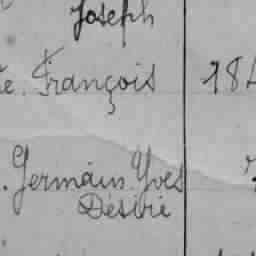 Joseph
te François 184
. Germain Yves
Désiré